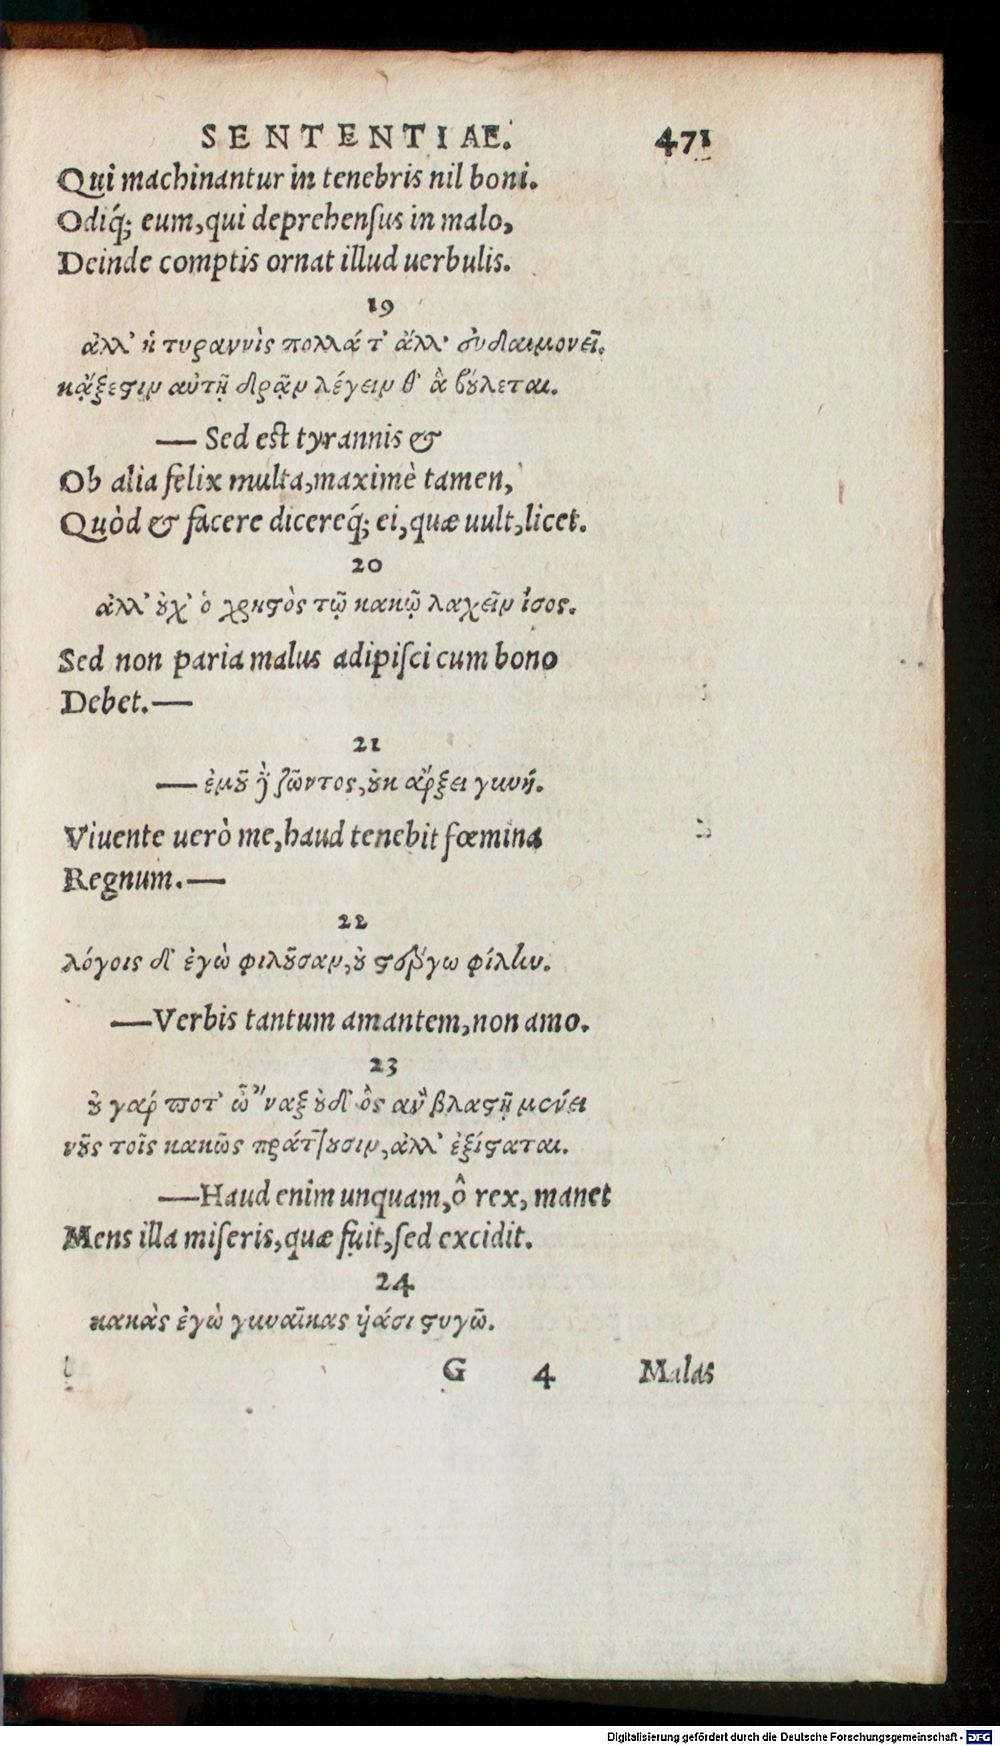 SENTENTIAE. 471
Qui machinantur in tenebris nil boni.
Odiq́; eum, qui deprehenſus in malo,
Deinde comptis ornat illud uerbulis.
19
ἀλλ' ἡ τυραννὶς πολλά τ' ἄλλ' εὐδαιμονεῖ.
κᾄξεστιν αὐτῇ δρᾷν λέγειν θ' ἃ βούλεται.
— Sed est tyrannis &
Ob alia felix multa, maximè tamen,
Quòd & facere dicereq́; ei, quæ uult, licet.
20
ἀλλ' οὐχ' ὁ χρηστὸς τῷ κακῷ λαχεῖν ἴσος.
Sed non paria malus adipiſci cum bono
Debet. —
21
— ἐμοῦ δὲ ζῶντος, οὐκ ἄρξει γυνή.
Viuente uerò me, haud tenebit fœmina
Regnum. —
22
λόγοις δ' ἐγὼ φιλοῦσαν, οὐ στέργω φίλην.
— Verbis tantum amantem, non amo.
23
οὐ γάρ ποτ' ὦ ἄναξ οὐδ' ὃς ἂν βλαστῇ μένει
νοῦς τοῖς κακῶς πράττουσιν, ἀλλ' ἐξίσταται.
— Haud enim unquam, ô rex, manet
Mens illa miſeris, quæ fuit, ſed excidit.
24
κακὰς ἐγὼ γυναῖκας υἱάσι στυγῶ.
G 4 Malas
Digitalisierung gefördert durch die Deutsche Forschungsgemeinschaft - DFG